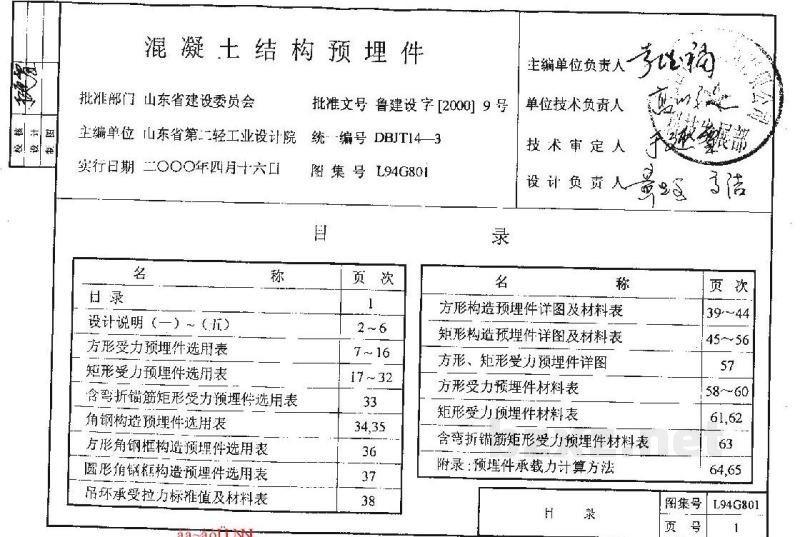 混凝土结构预埋件
批准部门 山东省建设委员会 批准文号 鲁建设字[2000] 9号
主编单位 山东省第二轻工业设计院 统一编号 DBJT14—3
实行日期 二〇〇〇年四月十六日 图集号 L94G801
主编单位负责人
单位技术负责人
技术审定人
设计负责人
校核
设计
制图
目 录
名 称 页 次
目录 1
设计说明(一)~(五) 2~6
方形受力预埋件选用表 7~16
矩形受力预埋件选用表 17~32
含弯折锚筋矩形受力预埋件选用表 33
角钢构造预埋件选用表 34,35
方形角钢框构造预埋件选用表 36
圆形角钢框构造预埋件选用表 37
吊环承受拉力标准值及材料表 38
名 称 页 次
方形构造预埋件详图及材料表 39~44
矩形构造预埋件详图及材料表 45~56
方形、矩形受力预埋件详图 57
方形受力预埋件材料表 58~60
矩形受力预埋件材料表 61,62
含弯折锚筋矩形受力预埋件材料表 63
附录:预埋件承载力计算方法 64,65
目 录 图集号 L94G801
页 号 1